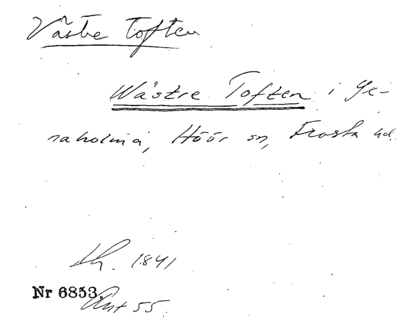 Västre Toften
Wästre Toften i Yx-
naholma, Höör sn, Frosta hd.
Lh. 1841
Nr 6853.
Akt 55.